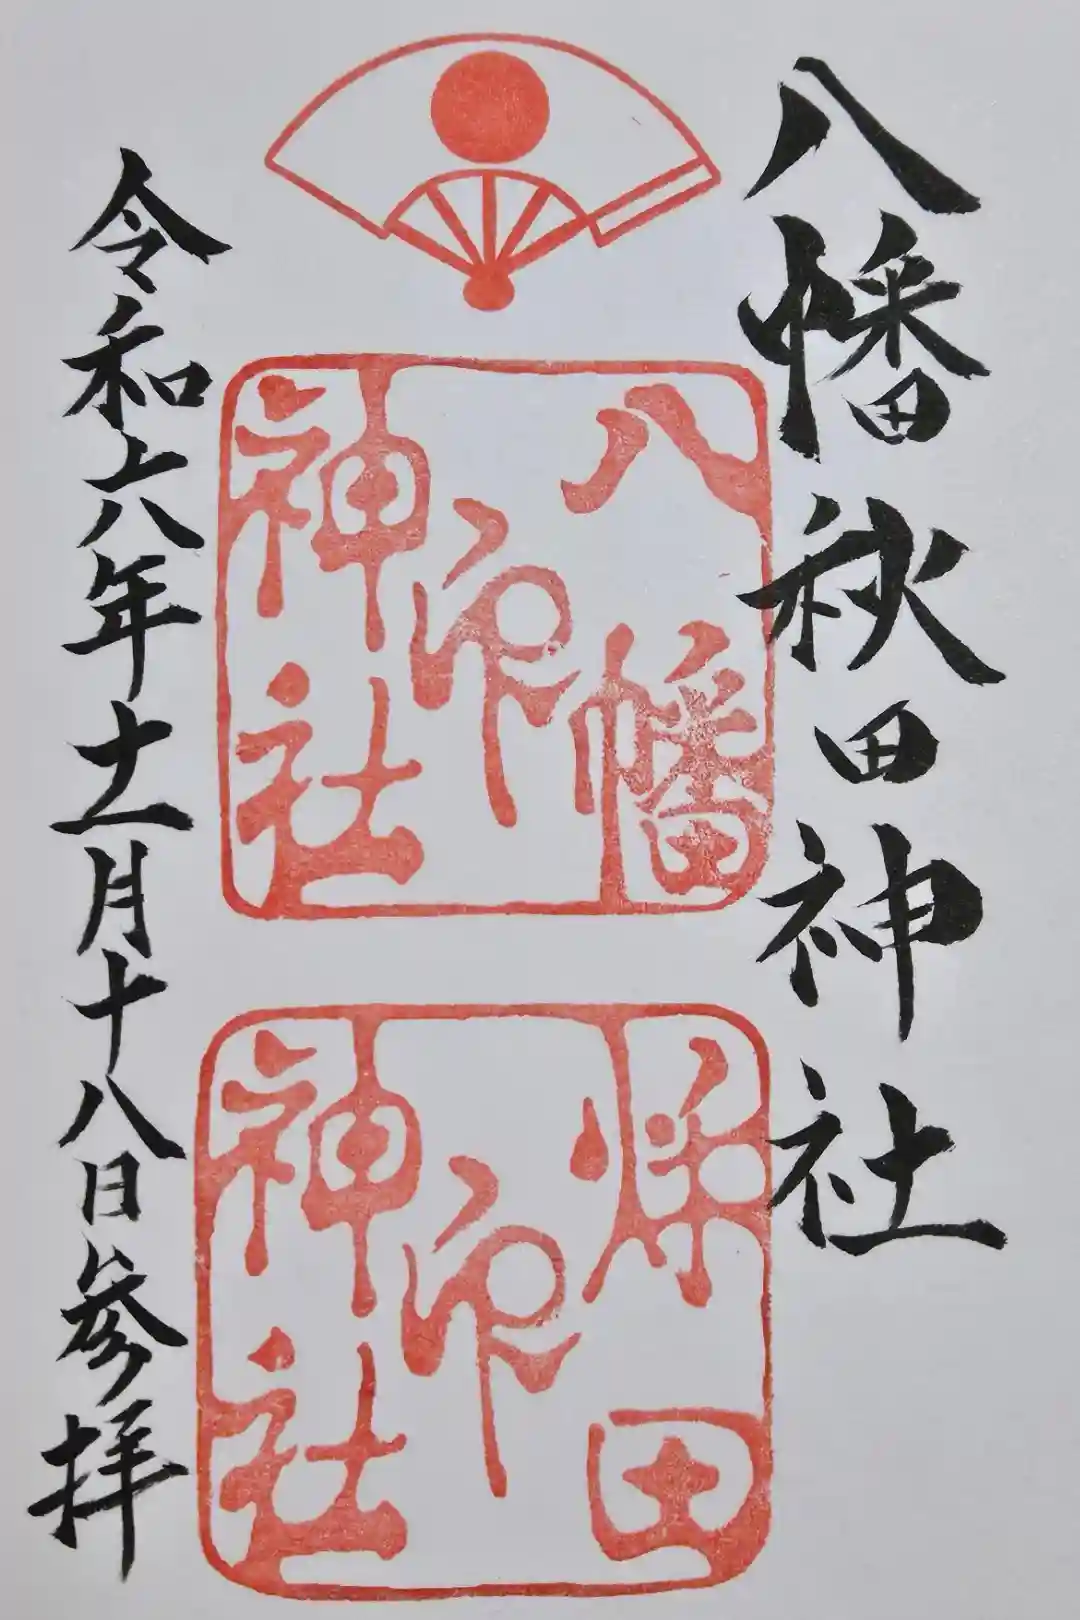 八幡秋田神社
八幡
印
神社
秋田
印
神社
令和六年十一月十八日参拝